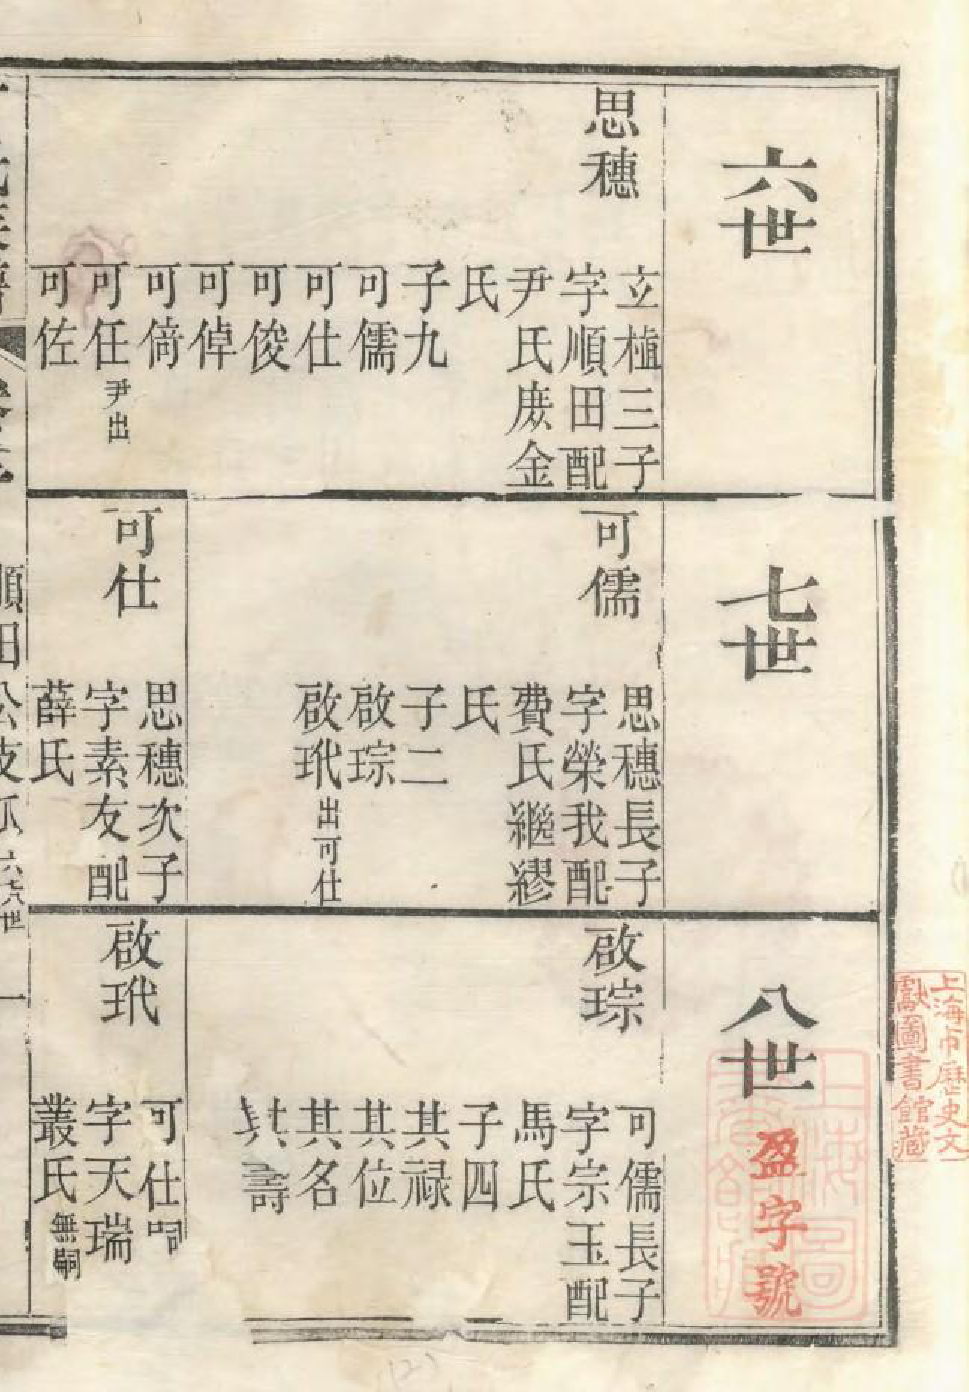 六世
思穗
立植三子
字順田配
尹氏庶金
氏
子九
可儒
可仕
可俊
可倬
可倚
可任尹出
可佐
七世
可儒
思穗長子
字榮我配
費氏繼繆
氏
子二
啟琮
啟玳出可仕
可仕
思穗次子
字素友配
薛氏
八世
啟琮
可儒長子
字宗玉配
馬氏
子四
其祿
其位
其名
其壽
啟玳
可仕嗣
字天瑞
叢氏無嗣
順田公支
六七八世
一
盈字號
上海市歷史文
獻圖書館藏